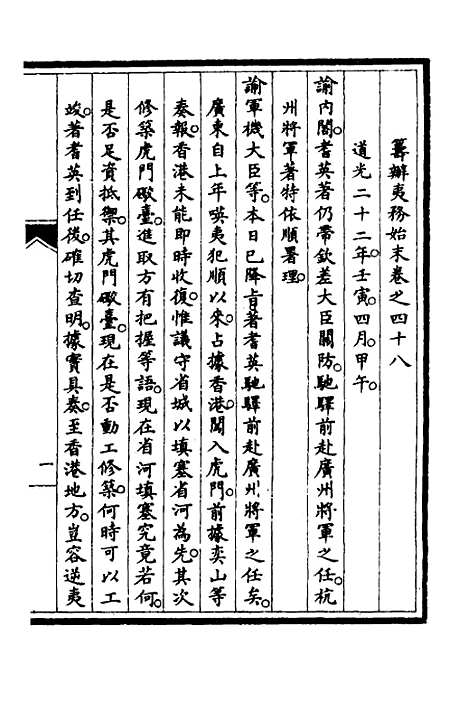 籌辦夷務始末卷之四十八
道光二十二年。壬寅。四月。甲午。
諭內閣。耆英著仍帶欽差大臣關防。馳驛前赴廣州將軍之任。杭
州將軍著特依順署理。
諭軍機大臣等。本日已降旨著耆英馳驛前赴廣州將軍之任矣。
廣東自上年㖞夷犯順以來。占據香港。闖入虎門。前據奕山等
奏報。香港未能即時收復。惟議守省城以填塞省河為先。其次
修築虎門礮臺。進取方有把握等語。現在省河填塞究竟若何。
是否足資抵禦。其虎門礮臺。現在是否動工修築。何時可以工
竣。著耆英到任後。確切查明。據實具奏。至香港地方。豈容逆夷
一